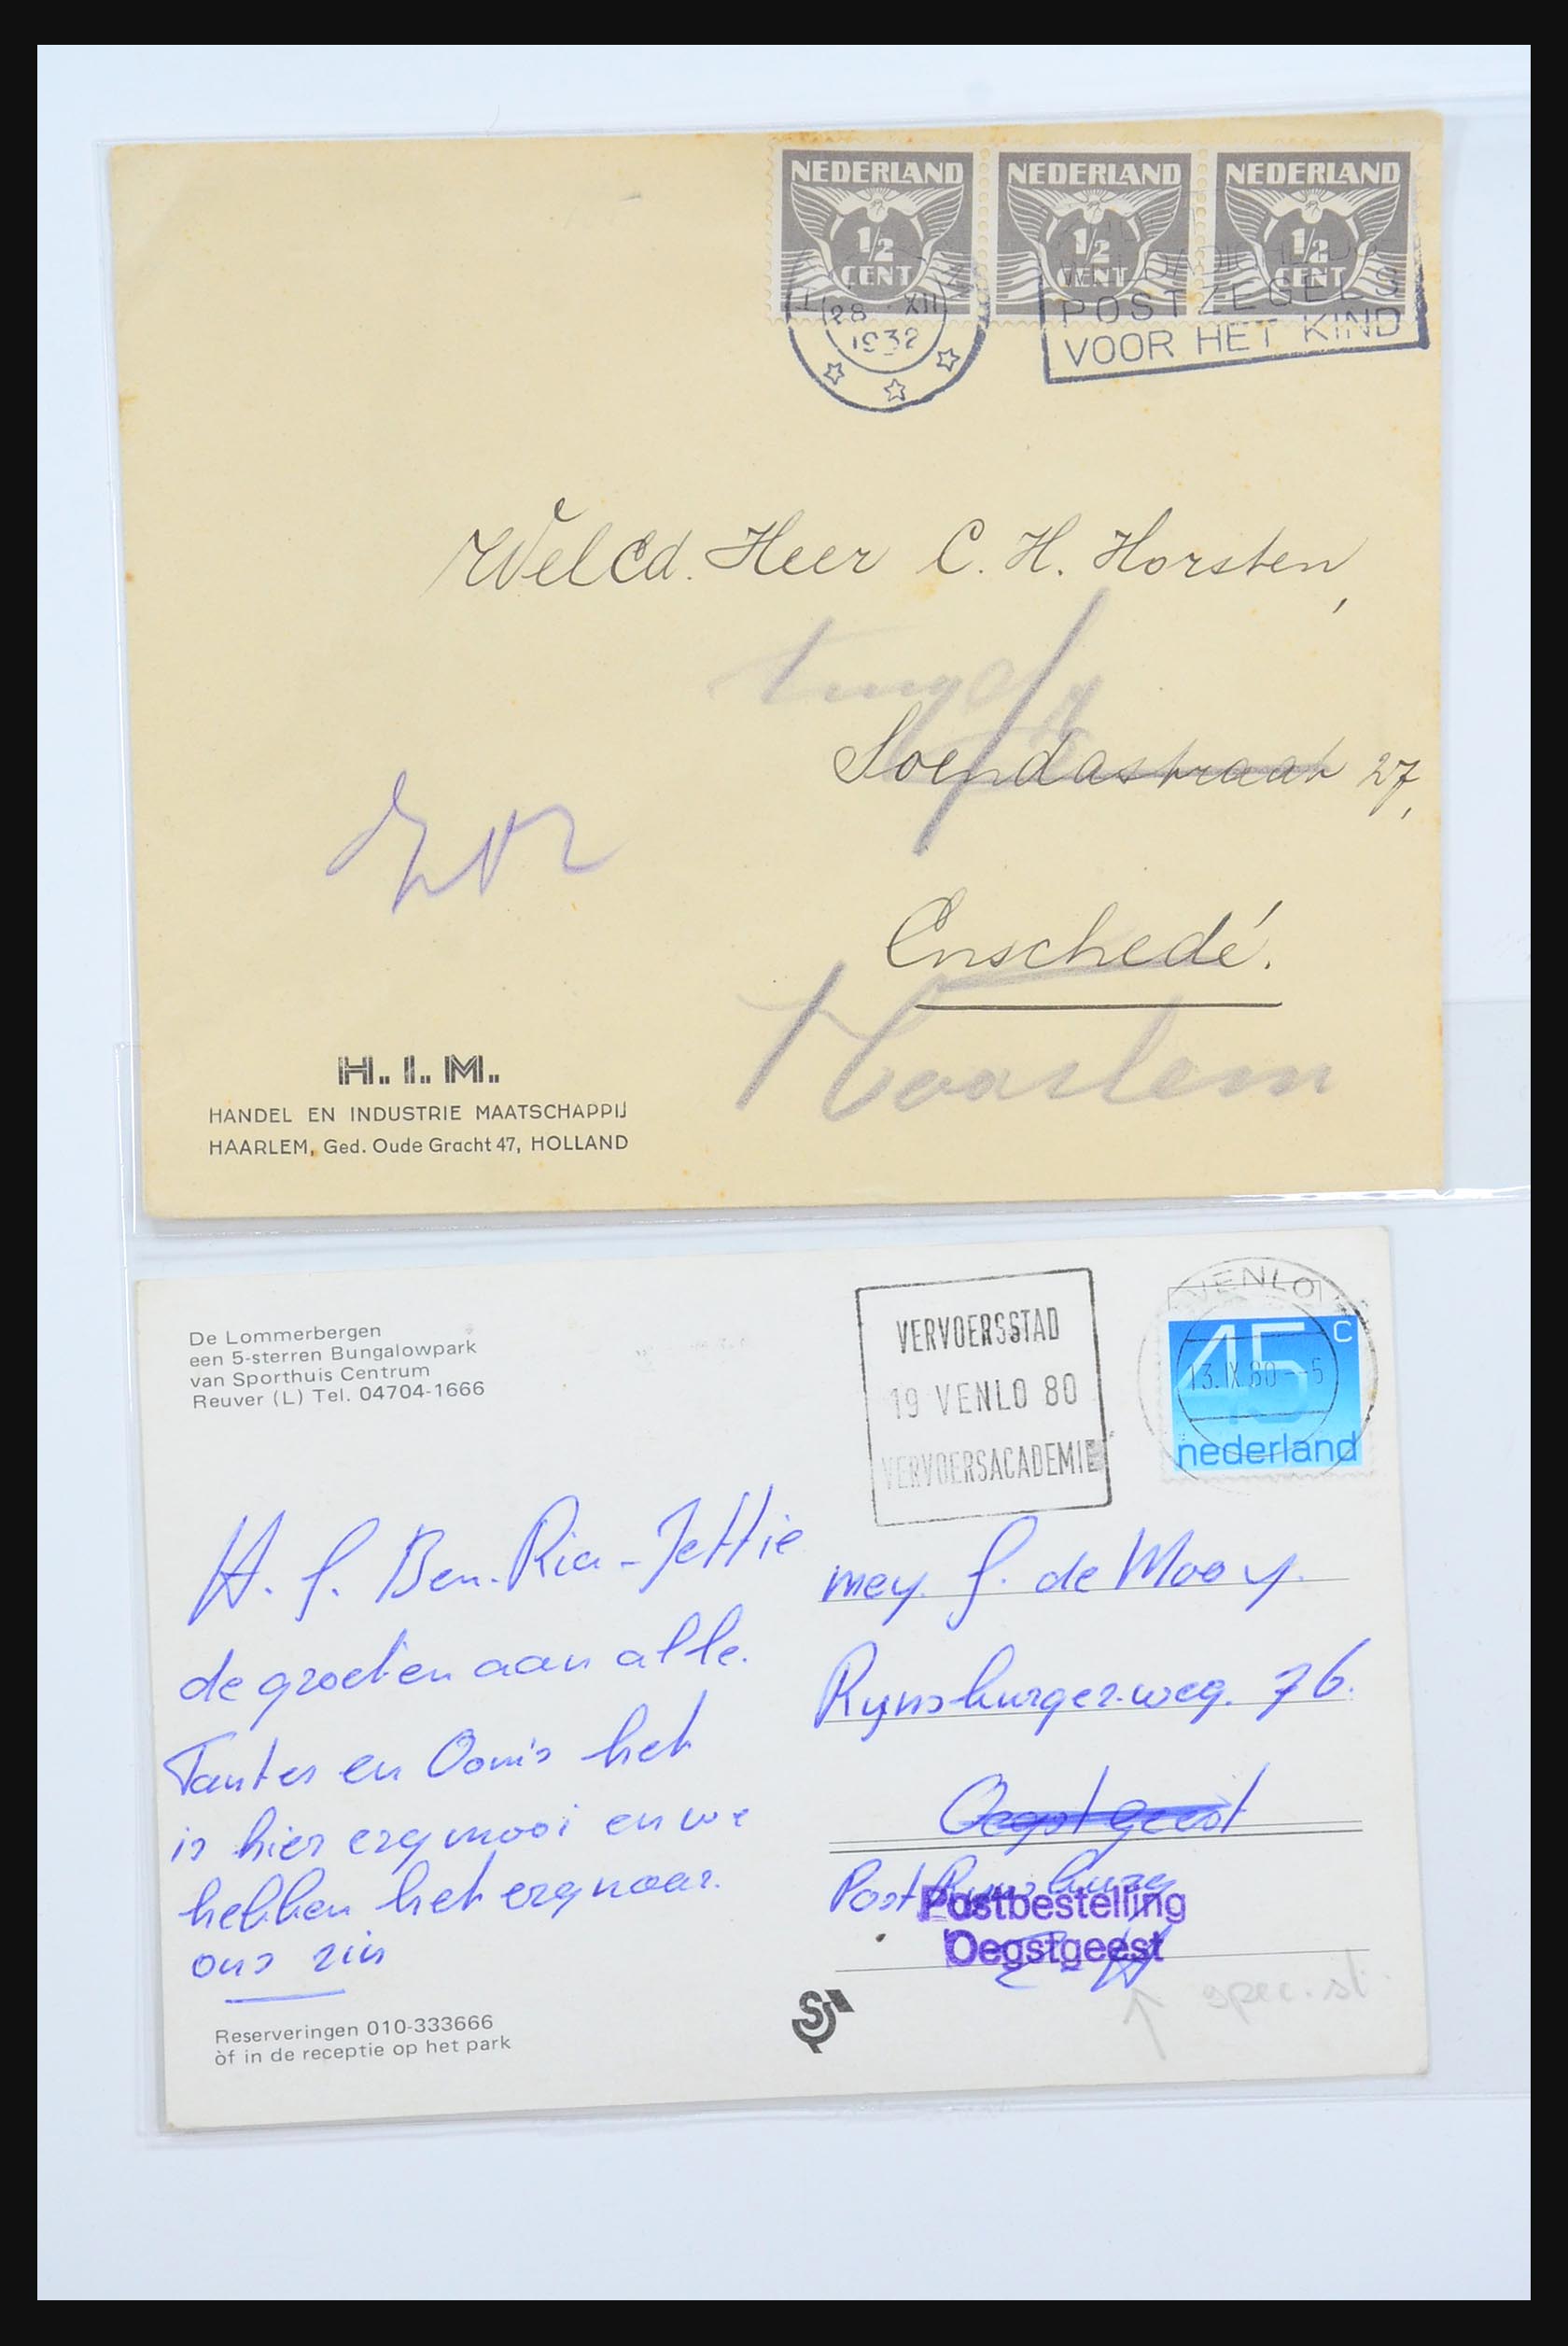 NEDERLAND NEDERLAND NEDERLAND
1/2 1/2 1/2
CENT CENT CENT
28 XII
1932
POSTZEGELS
VOOR HET KIND
WelEd. Heer C. H. Horsten,
Soendastraat 27,
Enschedé.
Haarlem
H.. I.. M..
HANDEL EN INDUSTRIE MAATSCHAPPIJ
HAARLEM, Ged. Oude Gracht 47, HOLLAND
De Lommerbergen
een 5-sterren Bungalowpark
van Sporthuis Centrum
Reuver (L) Tel. 04704-1666
VERVOERSSTAD
19 VENLO 80
VERVOERSACADEMIE
VENLO
45 c
13.IX.80 - 5
nederland
H. G. Ben. Ria - Jettie
de groeten aan alle.
Tantes en Oom's het
is hier erg mooi en we
hebben het erg naar.
ons zin
mey. G. de Mooy.
Rynsburger.weg. 76.
Oegstgeest
Post Rynsburg
Postbestelling
Oegstgeest
spec. st.
Reserveringen 010-333666
òf in de receptie op het park